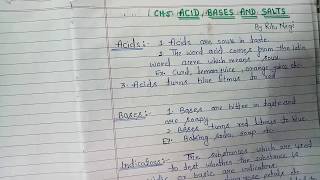 CH-5 ACID, BASES AND SALTS
By Ritu Negi
Acids:- 1. Acids are sour in taste.
2. The word acid comes from the latin
word acere which means sour
Ex: Curd, lemon juice, orange juice etc.
3. Acids turns blue litmus to red
Bases:- 1. Bases are bitter in taste and
are soapy.
2. Bases turns red litmus to blue
Ex: Baking soda, soap etc.
Indicators:- The substances which are used
to test whether the substance is
or basic are indicators.
petals etc